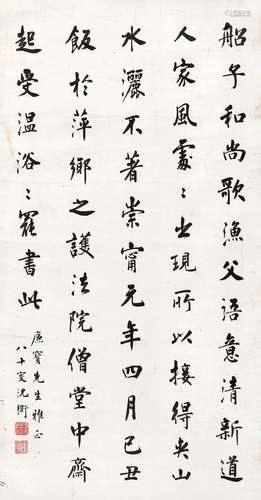 船子和尚歌漁父語意清新道
人家風處〻出現所以接得夾山
水灑不著崇甯元年四月己丑
飯於萍鄉之護法院僧堂中齋
起受溫浴〻罷書此
廉寶先生雅正
八十叟沈衛